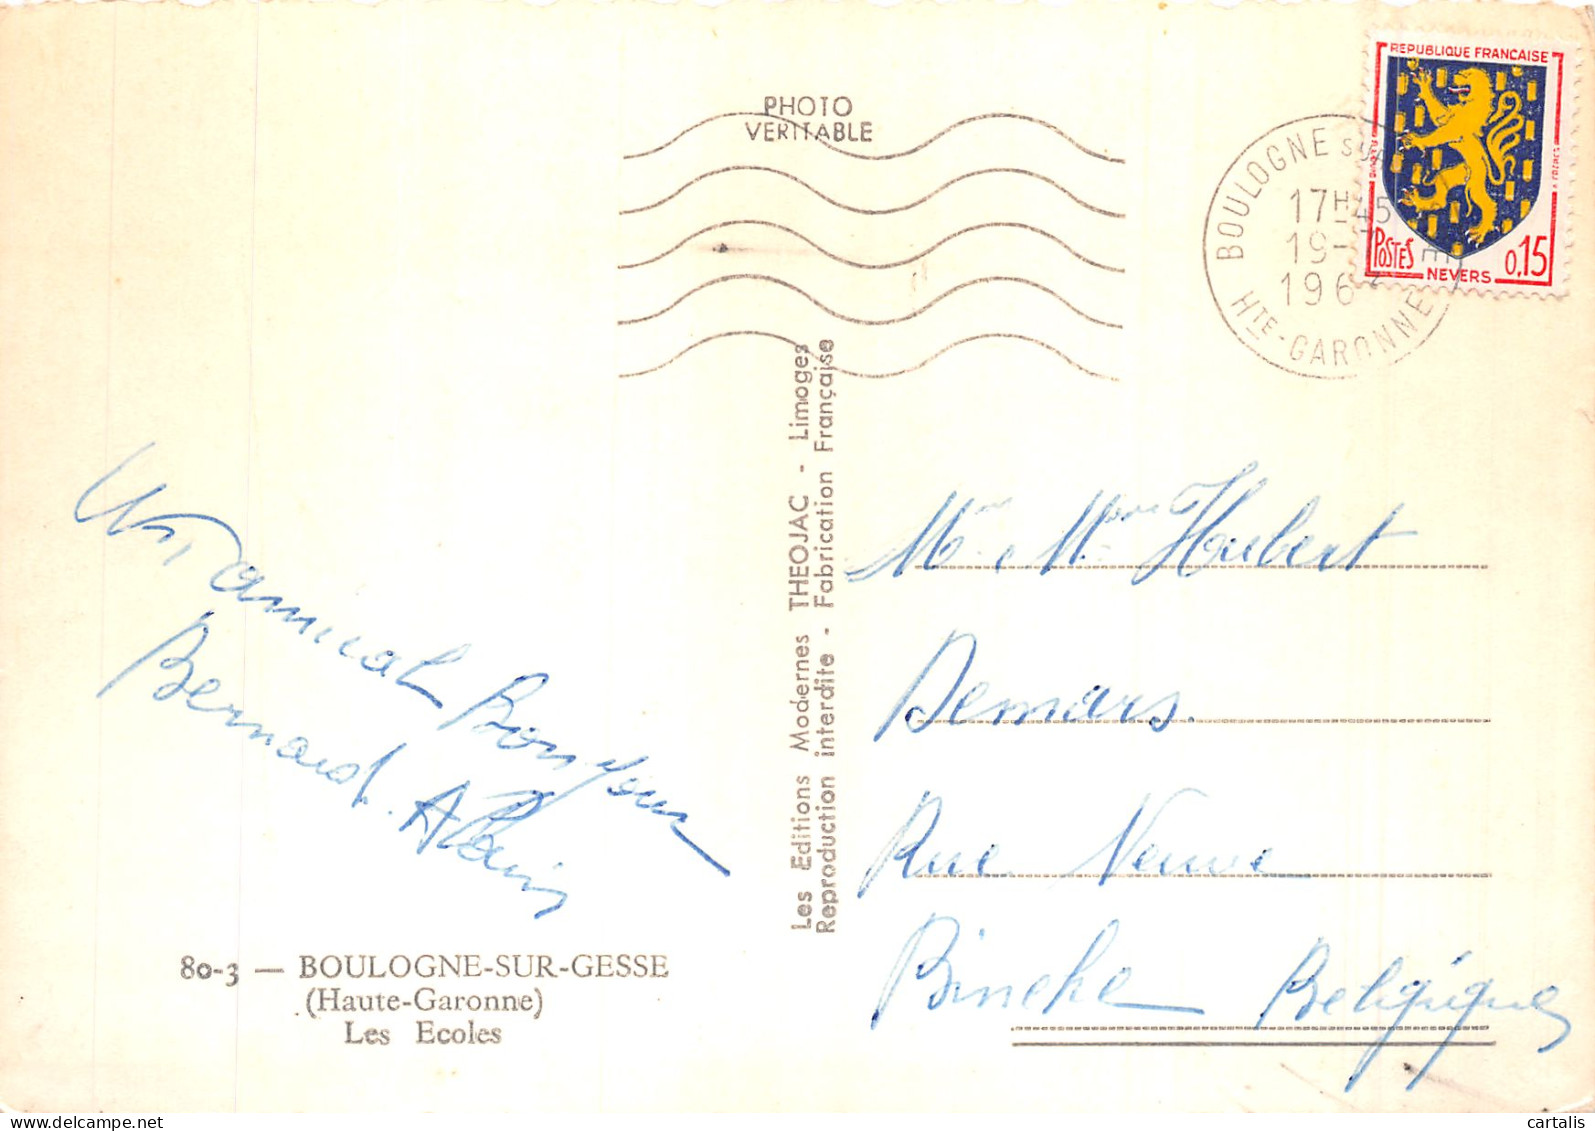 REPUBLIQUE FRANCAISE
POSTES
NEVERS
0,15
PHOTO
VERITABLE
BOULOGNE SUR
17H45
19-
196
HTE-GARONNE
Les Editions Modernes THEOJAC - Limoges
Reproduction interdite - Fabrication Française
Un amical Bonjour
Bernard. Alain
Mr e Mme Hubert
Demars.
Rue Neuve
Binche Belgique
80-3 — BOULOGNE-SUR-GESSE
(Haute-Garonne)
Les Ecoles
cartalis